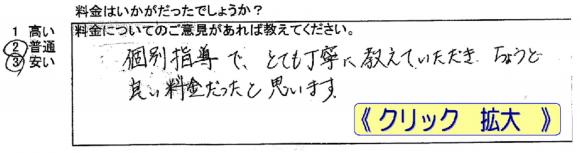 料金はいかがだったでしょうか？
1 高い
② 普通
③ 安い
料金についてのご意見があれば教えてください。
個別指導で、とても丁寧に教えていただき ちょうど
良い料金だったと思います。
《 クリック 拡大 》